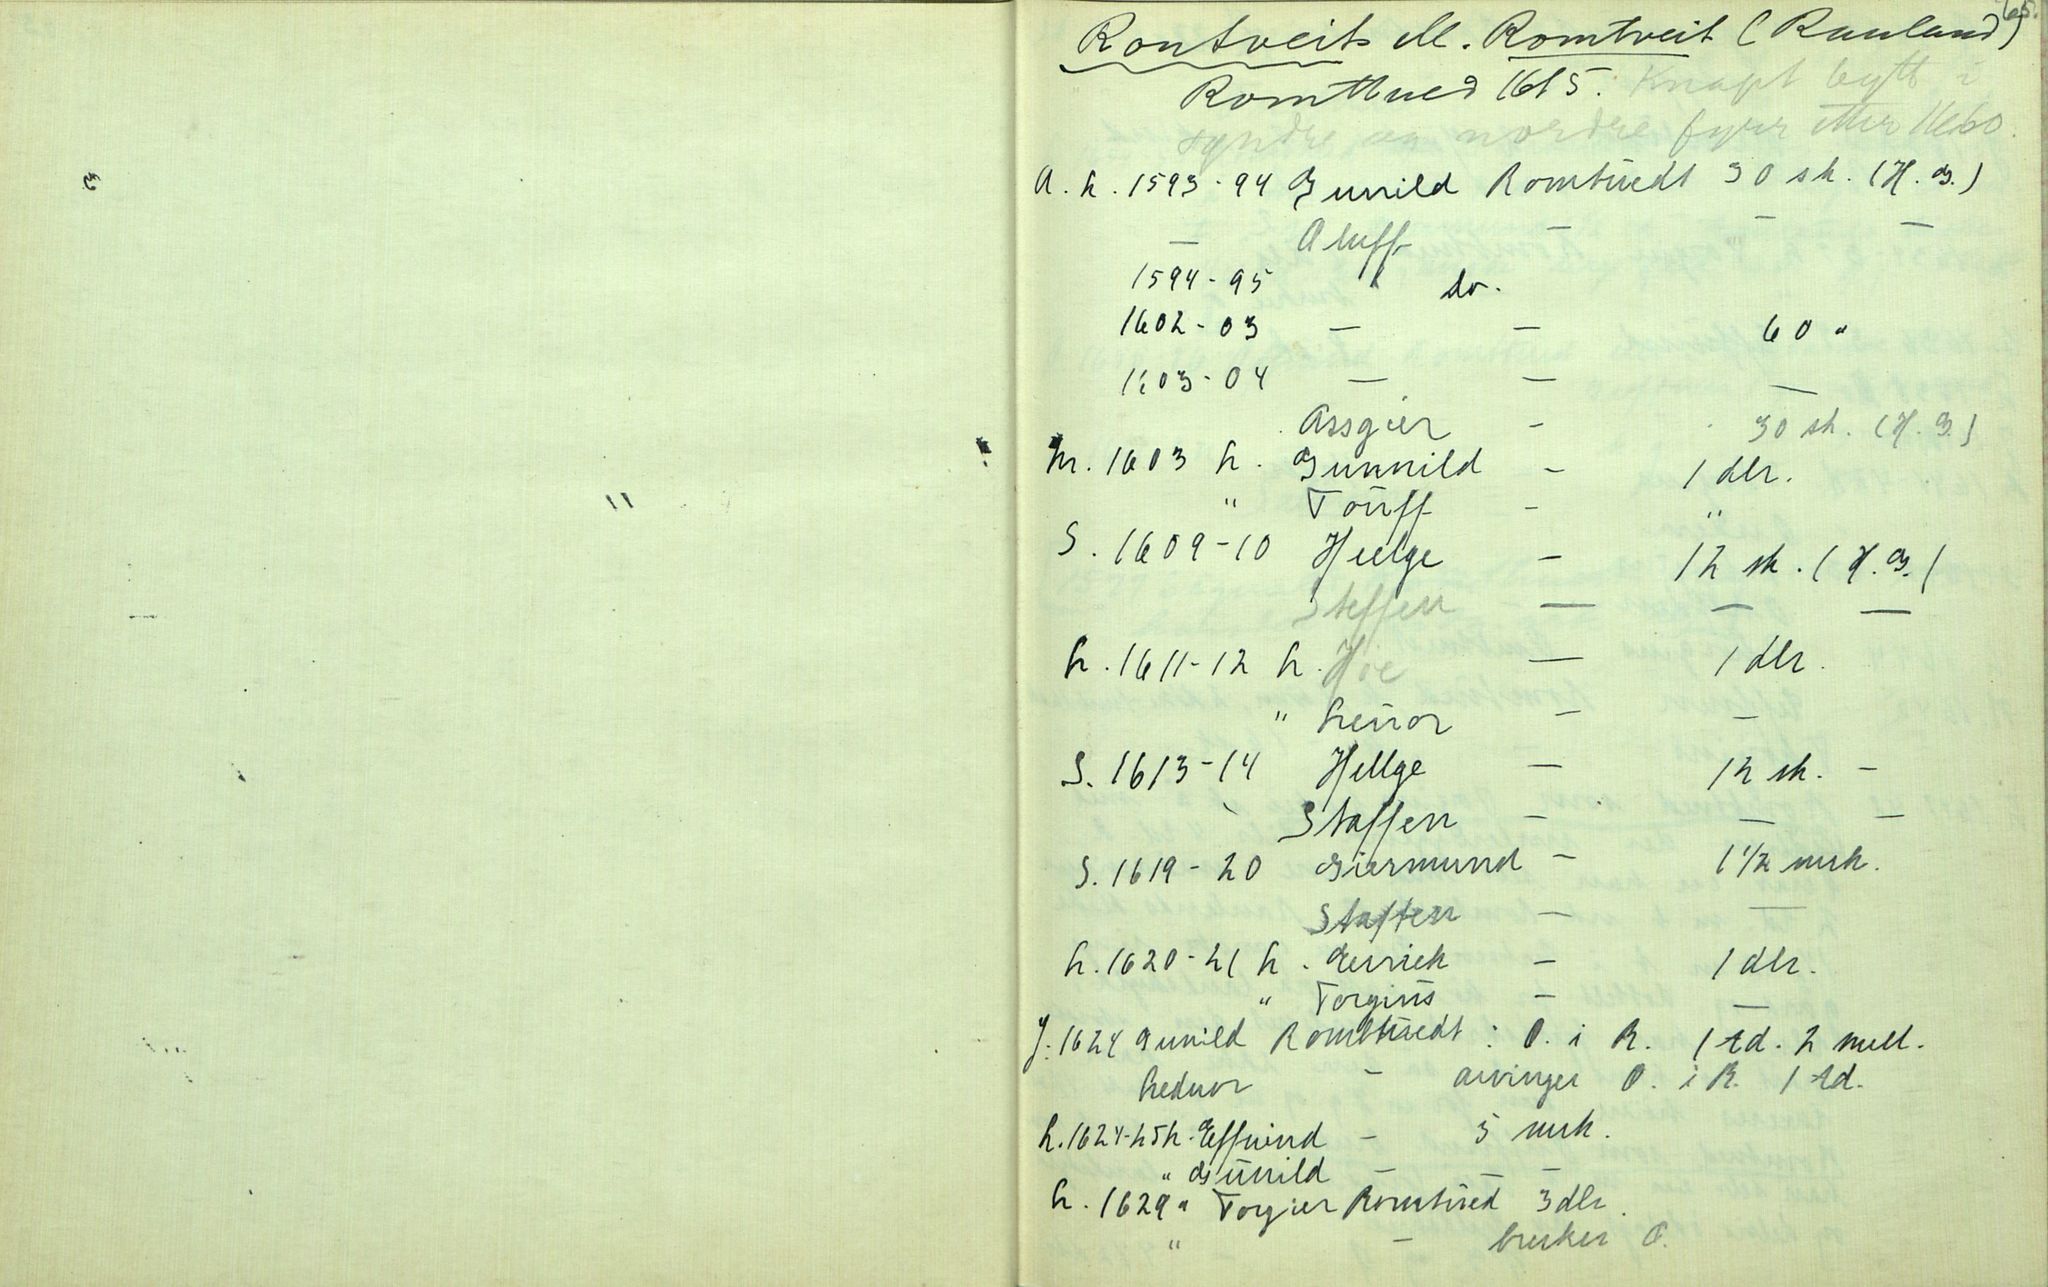 65.
Rontveit el. Romtveit (Rauland)
Romthued 1615. Knapt bytt i
syndre og nordre fyrr etter 1660.
A. L. 1593-94 Gunild Romtuedt 30 sk. (H. G.)
— Aluff — — —
1594-95 " do.
1602-03 — — 60 "
1603-04 — — —
Assgier - 30 sk. (H. G.)
M. 1603 L. Gunnild - 1 dlr.
" Touff - "
S. 1609-10 Helge - 12 sk. (H. G.)
Steffen — — —
L. 1611-12 L. Hoe — 1 dlr.
" Leuor - -
S. 1613-14 Hellge - 12 sk. -
Staffen - — -
S. 1619-20 Giermund - 1 1/2 mrk.
Staffen - —
L. 1620-21 L. - 1 dlr.
" Torgius - —
J. 1624 Gunild Romtuedt: O. i R. 1 td. 2 mell.
Leduor - arvinger O. i R. 1 td.
L. 1624-25 L. Effuind - 5 mrk.
" Gunild - -
L. 1629 " Torgier Romtued 3 dlr.
" - bruker O.